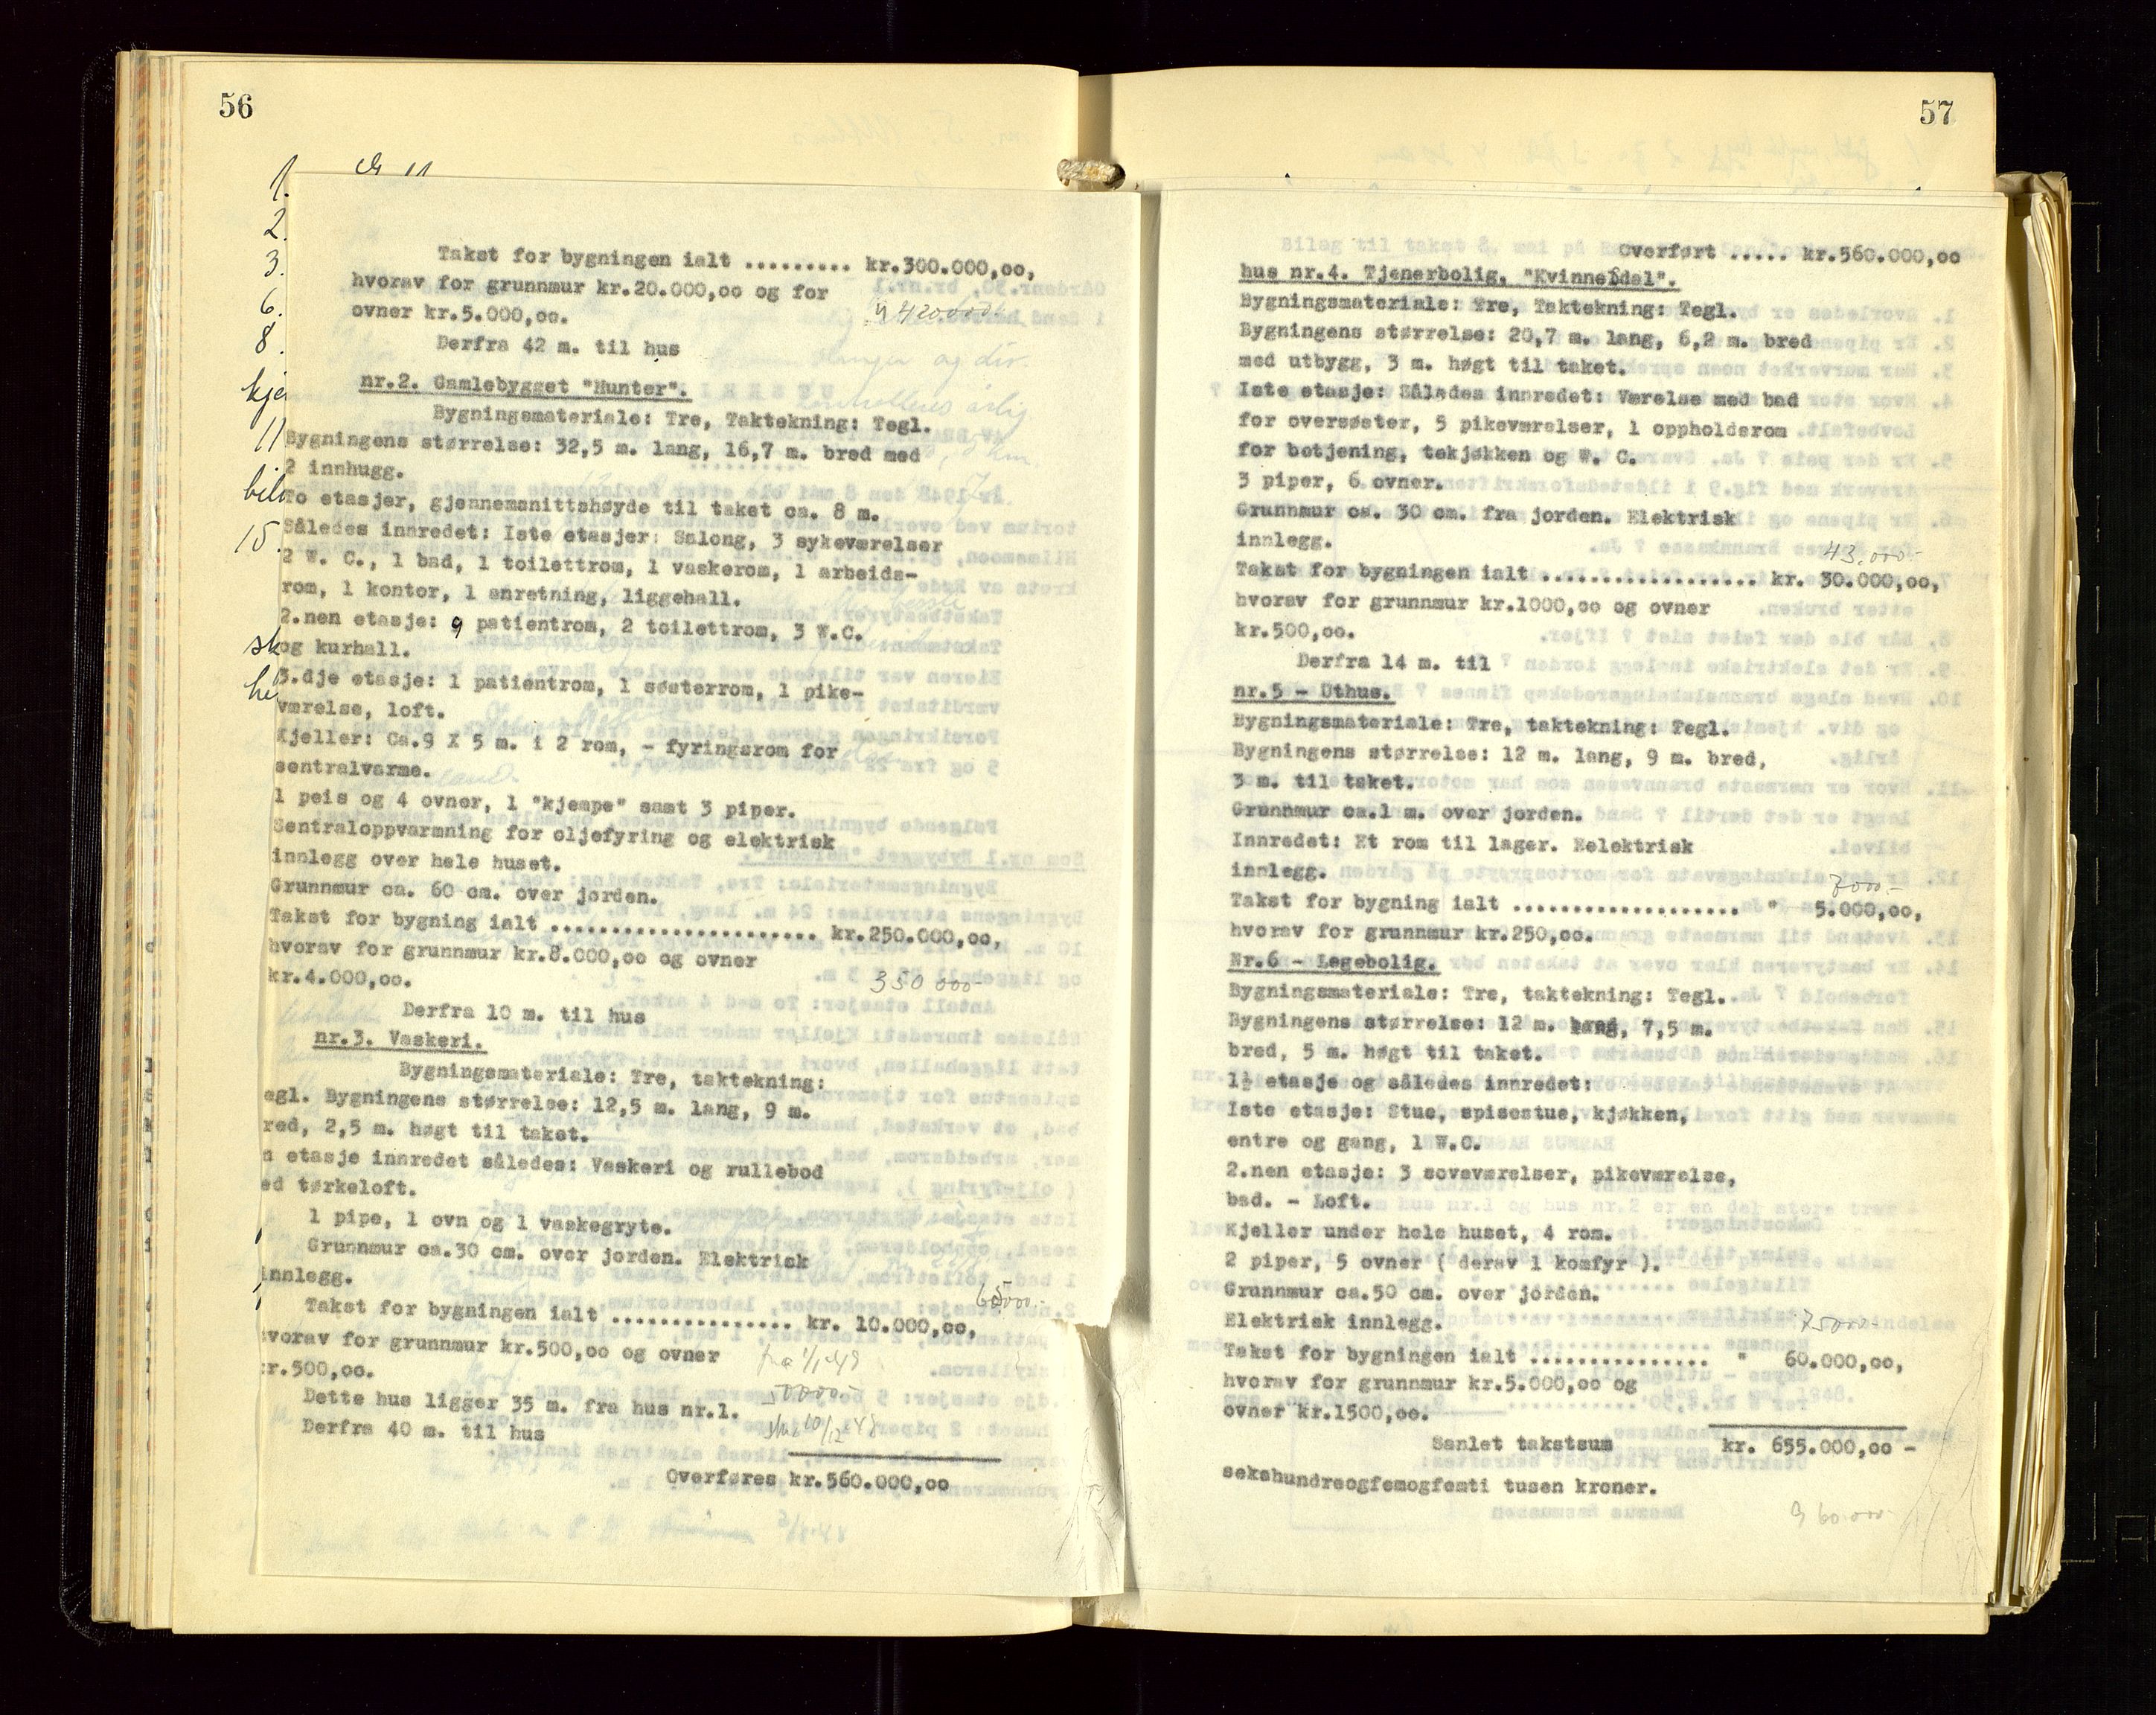 56
1.
2.
3.
6.
8.
kje
11
bil
15.
sk
he
Takst for bygningen ialt ......... kr.300.000,oo,
hvorav for grunnmur kr.20.000,oo og for
ovner kr.5.000,oo. 420.000.-
Derfra 42 m. til hus
nr.2. Gamlebygget "Hunter".
Bygningsmateriale: Tre, Taktekning: Tegl.
Bygningens størrelse: 32,5 m. lang, 16,7 m. bred med
2 innhugg.
To etasjer, gjennemsnittshøyde til taket ca. 8 m.
Således innredet: Iste etasjer: Salong, 3 sykeværelser
2 W. C., 1 bad, 1 toilettrom, 1 vaskerom, 1 arbeids-
rom, 1 kontor, 1 anretning, liggehall.
2.nen etasje: 9 patientrom, 2 toilettrom, 3 W.C.
og kurhall.
3.dje etasje: 1 patientrom, 1 søsterrom, 1 pike-
værelse, loft.
Kjeller: Ca.9 X 5 m. i 2 rom, - fyringsrom for
sentralvarme.
1 peis og 4 ovner, 1 "kjempe" samt 3 piper.
Sentraloppvarmning for oljefyring og elektrisk
innlegg over hele huset.
Grunnmur ca. 60 cm. over jorden.
Takst for bygning ialt ...................... kr.250.000,oo,
hvorav for grunnmur kr.8.000,oo og ovner
kr.4.000,oo. 350 000-
Derfra 10 m. til hus
nr.3. Vaskeri.
Bygningsmateriale: Tre, taktekning:
egl. Bygningens størrelse: 12,5 m. lang, 9 m.
red, 2,5 m. høgt til taket.
n etasje innredet således: Vaskeri og rullebod
ed tørkeloft.
1 pipe, 1 ovn og 1 vaskegryte.
Grunnmur ca.30 cm. over jorden. Elektrisk
innlegg.
65000.-
Takst for bygningen ialt ............... kr. 10.000,oo,
vorav for grunnmur kr.500,oo og ovner
r.500,oo. fra 1/1-48
Dette hus ligger 35 m. fra hus nr.1. 50000.-
Derfra 40 m. til hus
Overføres kr.560.000,oo
57
Overført ..... kr.560.000,oo
hus nr.4. Tjenerbolig, "Kvinnedal".
Bygningsmateriale: Tre, Taktekning: Tegl.
Bygningens størrelse: 20,7 m. lang, 6,2 m. bred
med utbygg, 3 m. høgt til taket.
Iste etasje: Således innredet: Værelse med bad
for oversøster, 5 pikeværelser, 1 oppholdsrom
for betjening, tekjøkken og W. C.
3 piper, 6 ovner.
Grunnmur ca. 30 cm. fra jorden. Elektrisk
innlegg.
43.000.-
Takst for bygningen ialt .................. kr. 30.000,oo,
hvorav for grunnmur kr.1000,oo og ovner
kr.500,oo.
Derfra 14 m. til
nr.5 - Uthus.
Bygningsmateriale: Tre, taktekning: Tegl.
Bygningens størrelse: 12 m. lang, 9 m. bred,
3 m. til taket.
Grunnmur ca.1 m. over jorden.
Innredet: Et rom til lager. Eelektrisk
innlegg.
7000.-
Takst for bygning ialt ................... " 5.000,oo,
hvorav for grunnmur kr.250,oo.
Nr.6 - Legebolig.
Bygningsmateriale: Tre, taktekning: Tegl.
Bygningens størrelse: 12 m. lang, 7,5 m.
bred, 5 m. høgt til taket.
1½ etasje og således innredet:
Iste etasje: Stue, spisestue, kjøkken,
entre og gang, 1 W.C.
2.nen etasje: 3 soveværelser, pikeværelse,
bad. - Loft.
Kjeller under hele huset, 4 rom.
2 piper, 5 ovner ( derav 1 komfyr ).
Grunnmur ca.50 cm. over jorden.
Elektrisk innlegg. 75000.-
Takst for bygningen ialt ............... " 60.000,oo,
hvorav for grunnmur kr.5.000,oo og
ovner kr.1500,oo.
Samlet takstsum kr. 655.000,oo -
sekshundreogfemogfemti tusen kroner.
960.000